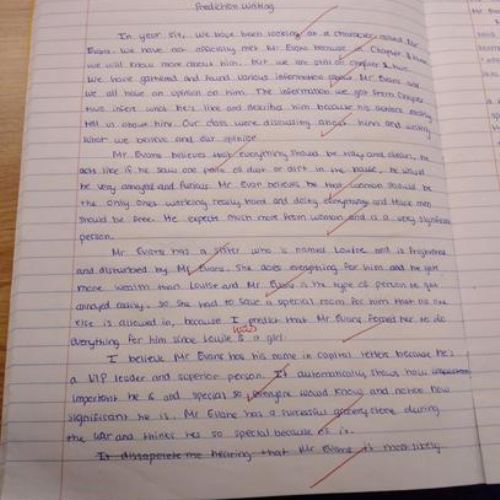 Prediction Writing
In year six, we have been looking at a character named Mr
Evans. We have not officially met Mr Evans because in chapter 3
we will know more about him. but we are still on chapter 2 two.
We have gathered and found various information about Mr Evans and
we all have an opinion on him. The information we got from chapter
two infers what he's like and describes him because his sister
tell us about him. Our class were discussing about him and writing
what we believe and our opinion
Mr Evans believes that everything should be tidy and clean, he
acts like if he saw one piece of dust or dirt in the house, he would
be very annoyed and furious. Mr Evan believes be that women should be
the only ones working really hard and doing everything and these men
should be free. He expects much more from women and is a very significant
person.
Mr Evans has a sister who is named Louise and is frightened
and disturbed by Mr Evans. She does everything for him and he got
more wealth than Louise and Mr Evans is the type of person to get
annoyed easily. So she had to save a special room for him that no one
else is allowed in, because I predict that Mr Evans forced her to do
was
everything for him since Louise is a girl.
I believe Mr Evans has his name in capital letters because he's
a VIP leader and superior person. It automatically shows how
important he is and special so everyone would know and notice how
significant he is. Mr Evans has a successful grocery store during
the war and thinks hes so special because of it.
It me hearing that Mr Evans is most likely